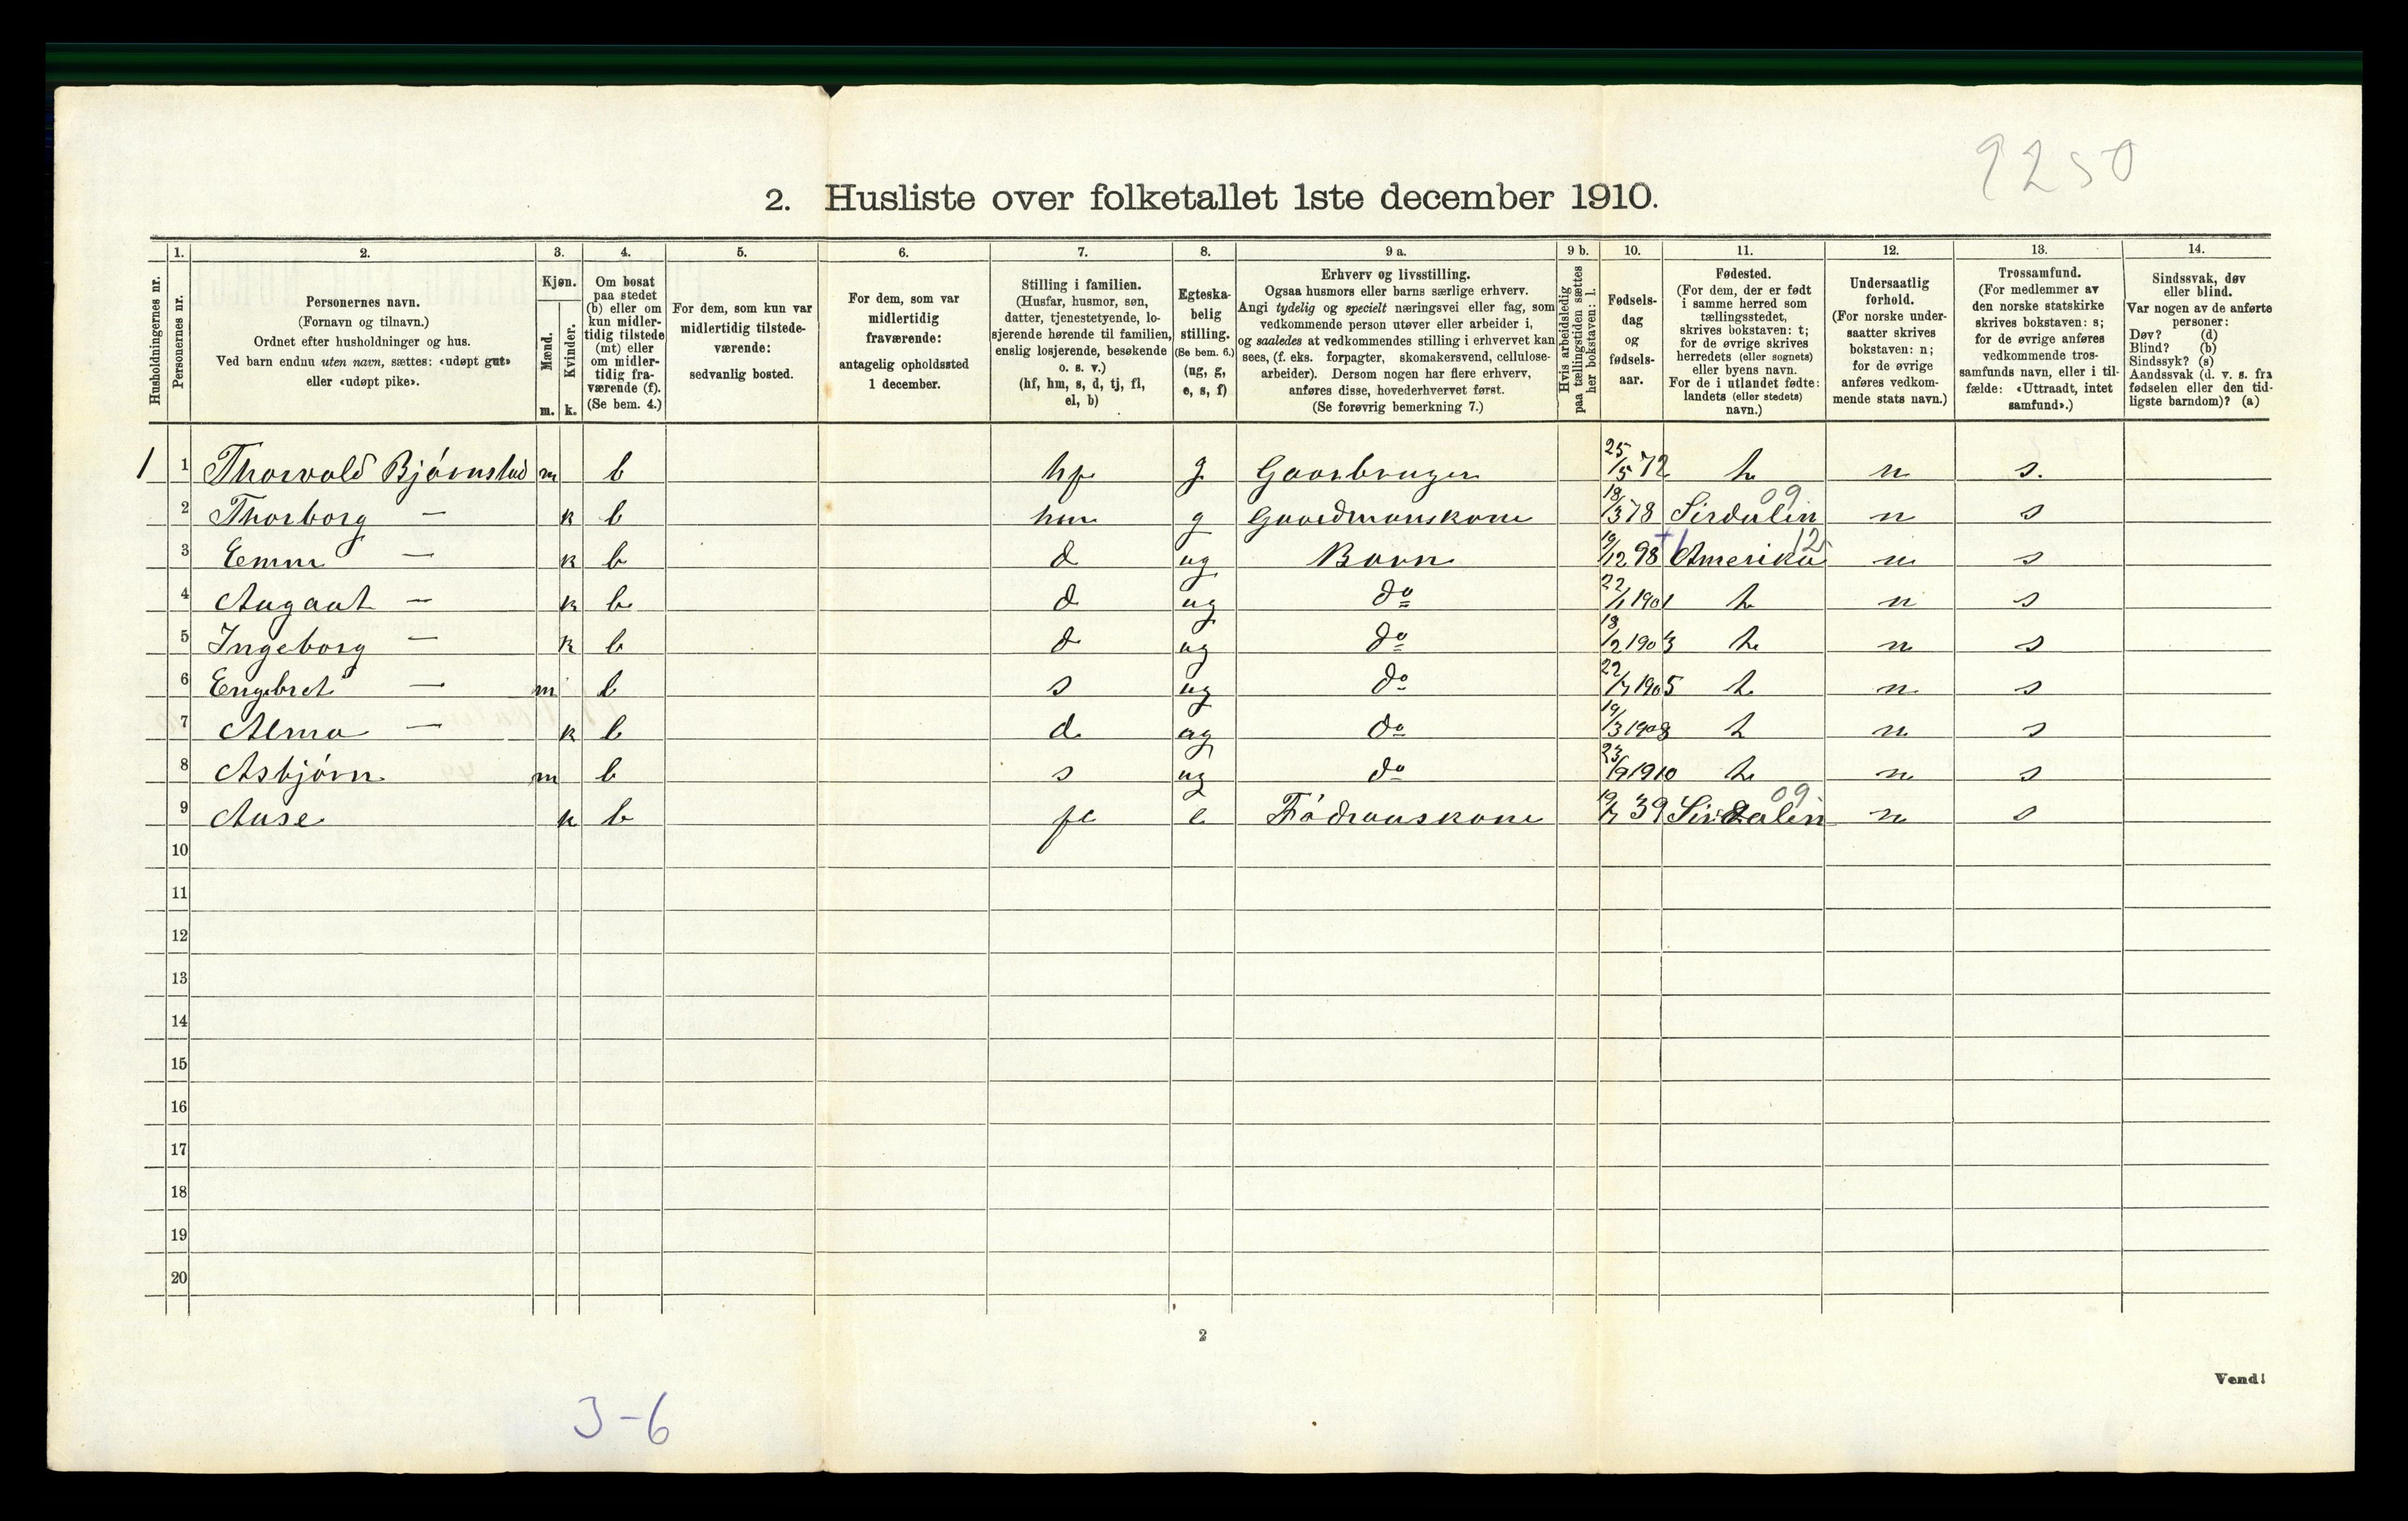 9250
2. Husliste over folketallet 1ste december 1910.
Husholdningernes nr.
1.
Personernes nr.
2.
Personernes navn.
(Fornavn og tilnavn.)
Ordnet efter husholdninger og hus.
Ved barn endnu uten navn, sættes: «udøpt gut»
eller «udøpt pike».
3.
Kjøn.
Mænd.
Kvinder.
m. k.
4.
Om bosat
paa stedet
(b) eller om
kun midler-
tidig tilstede
(mt) eller
om midler-
tidig fra-
værende (f).
(Se bem. 4.)
5.
For dem, som kun var
midlertidig tilstede-
værende:
sedvanlig bosted.
6.
For dem, som var
midlertidig
fraværende:
antagelig opholdssted
1 december.
7.
Stilling i familien.
(Husfar, husmor, søn,
datter, tjenestetyende, lo-
sjerende hørende til familien,
enslig losjerende, besøkende
o. s. v.)
(hf, hm, s, d, tj, fl,
el, b)
8.
Egteska-
belig
stilling.
(Se bem. 6.)
(ug, g,
e, s, f)
9 a.
Erhverv og livsstilling.
Ogsaa husmors eller barns særlige erhverv.
Angi tydelig og specielt næringsvei eller fag, som
vedkommende person utøver eller arbeider i,
og saaledes at vedkommendes stilling i erhvervet kan
sees, (f. eks. forpagter, skomakersvend, cellulose-
arbeider). Dersom nogen har flere erhverv,
anføres disse, hovederhvervet først.
(Se forøvrig bemerkning 7.)
9 b.
Hvis arbeidsledig
paa tællingstiden sættes
her bokstaven: l.
10.
Fødsels-
dag
og
fødsels-
aar.
11.
Fødested.
(For dem, der er født
i samme herred som
tællingsstedet,
skrives bokstaven: t;
for de øvrige skrives
herredets (eller sognets)
eller byens navn.
For de i utlandet fødte:
landets (eller stedets)
navn.)
12.
Undersaatlig
forhold.
(For norske under-
saatter skrives
bokstaven: n;
for de øvrige
anføres vedkom-
mende stats navn.)
13.
Trossamfund.
(For medlemmer av
den norske statskirke
skrives bokstaven: s;
for de øvrige anføres
vedkommende tros-
samfunds navn, eller i til-
fælde: «Uttraadt, intet
samfund».)
14.
Sindssvak, døv
eller blind.
Var nogen av de anførte
personer:
Døv? (d)
Blind? (b)
Sindssyk? (s)
Aandssvak (d. v. s. fra
fødselen eller den tid-
ligste barndom)? (a)
1 1 Thorvald Bjørnstad m b hf g Gaarbruger 25/5 72 n s.
2 Thorborg — k b hm g Gaardmanskone 18/3 78 Sirdalin 09 n s
3 Emm — k b d ug Barn 19/12 98 Amerika 12 n s
4 Augaat — k b d ug do 22/1 1901 n s
5 Ingeborg — k b d ug do 18/2 1903 n s
6 Engebret — m b s ug do 22/7 1905 n s
7 Alma — k b d ug do 19/3 1908 n s
8 Asbjørn m b s ug do 23/9 1910 n s
9 Aase k b fl e Fødraaskone 19/7 39 Sirdalin 09 n s
10
11
12
13
14
15
16
17
18
19
20
2
Vend!
3-6